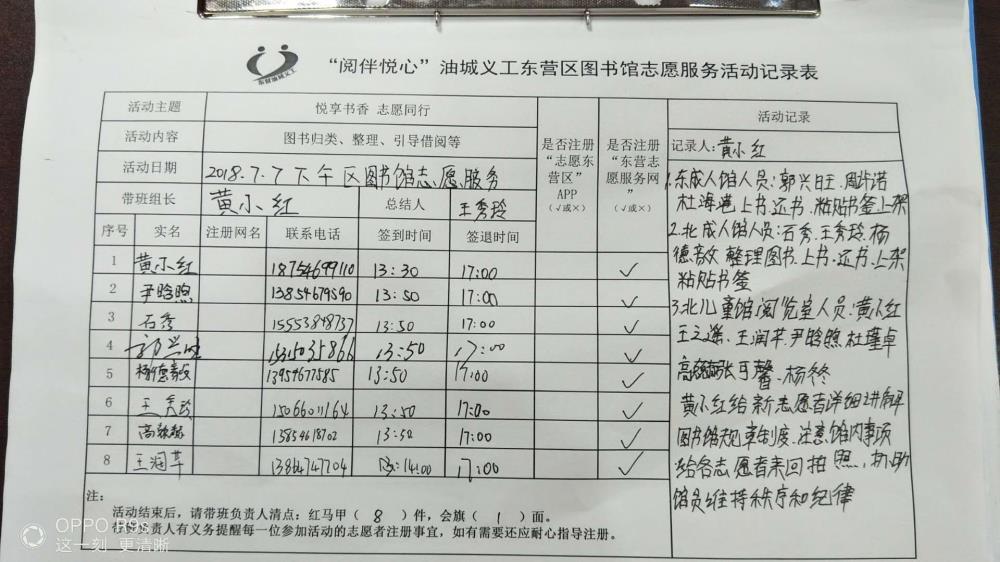 东营油城义工
“阅伴悦心”油城义工东营区图书馆志愿服务活动记录表
活动主题 悦享书香 志愿同行 是否注册“志愿东营区”APP（√或×） 是否注册“东营志愿服务网”（√或×） 活动记录
活动内容 图书归类、整理、引导借阅等
活动日期 2018.7.7下午区图书馆志愿服务
带班组长 黄小红 总结人 王秀玲
序号 实名 注册网名 联系电话 签到时间 签退时间
1 黄小红 18754699110 13:30 17:00 ✓
2 尹晗煦 13854679590 13:50 17:00 ✓
3 石秀 15553848737 13:50 17:00 ✓
4 郭兴旺 15315035866 13:50 17:00 ✓
5 杨德敏 13954677585 13:50 17:00 ✓
6 王秀玲 15066011164 13:50 17:00 ✓
7 13854618702 13:50 17:00 ✓
8 王润苹 13864747704 14:00 17:00 ✓
记录人:黄小红
1.东成人馆人员:郭兴旺.周许诺
杜海港上书.还书.粘贴书签上架
2.北成人馆人员:石秀.王秀玲.杨
德敏 整理图书.上书.还书.上架
粘贴书签
3.北儿童馆阅览室人员:黄小红
王之遥.王润苹.尹晗煦.杜瑾卓
张于馨.杨佟
黄小红给新志愿者详细讲解
图书馆规章制度.注意馆内事项
给各志愿者来回拍照,协助
馆员维持秩序和纪律
注:
活动结束后，请带班负责人清点：红马甲（8）件，会旗（1）面。
负责人有义务提醒每一位参加活动的志愿者注册事宜，如有需要还应耐心指导注册。
OPPO R9s
这一刻 更清晰